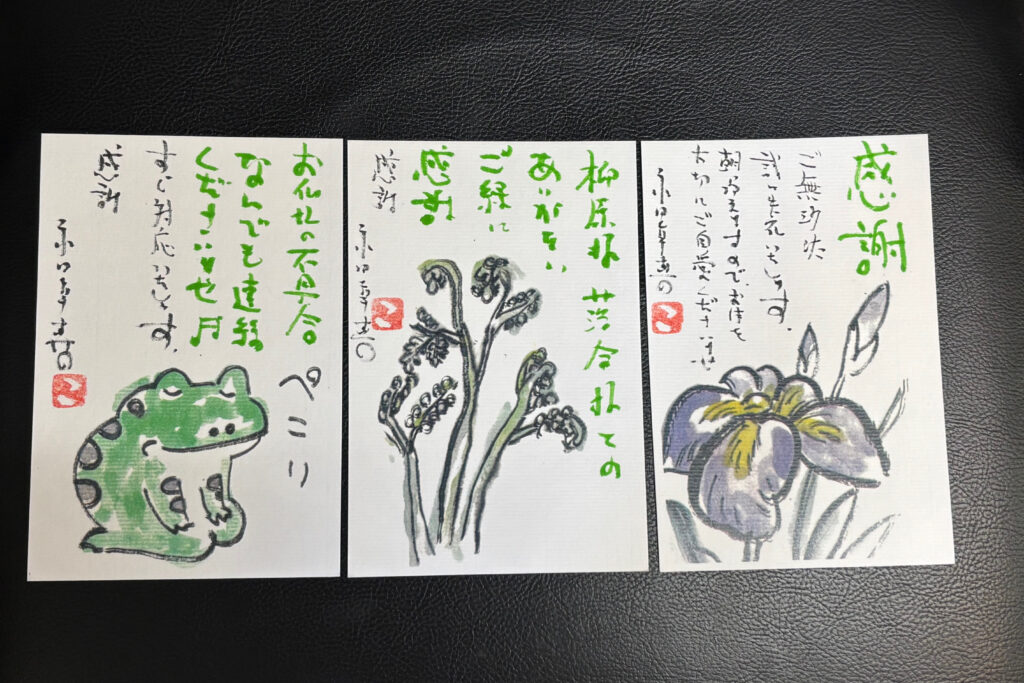 感謝
ご無沙汰
致しております。
朝冷えますのでお体を
大切にご自愛くださいませ
柳原様 落合様との
ありがたい
ご縁に
感謝
感謝
お仏壇の不具合
なんでも連絡
くださいませ
すぐ対応いたします。
感謝
ペこり